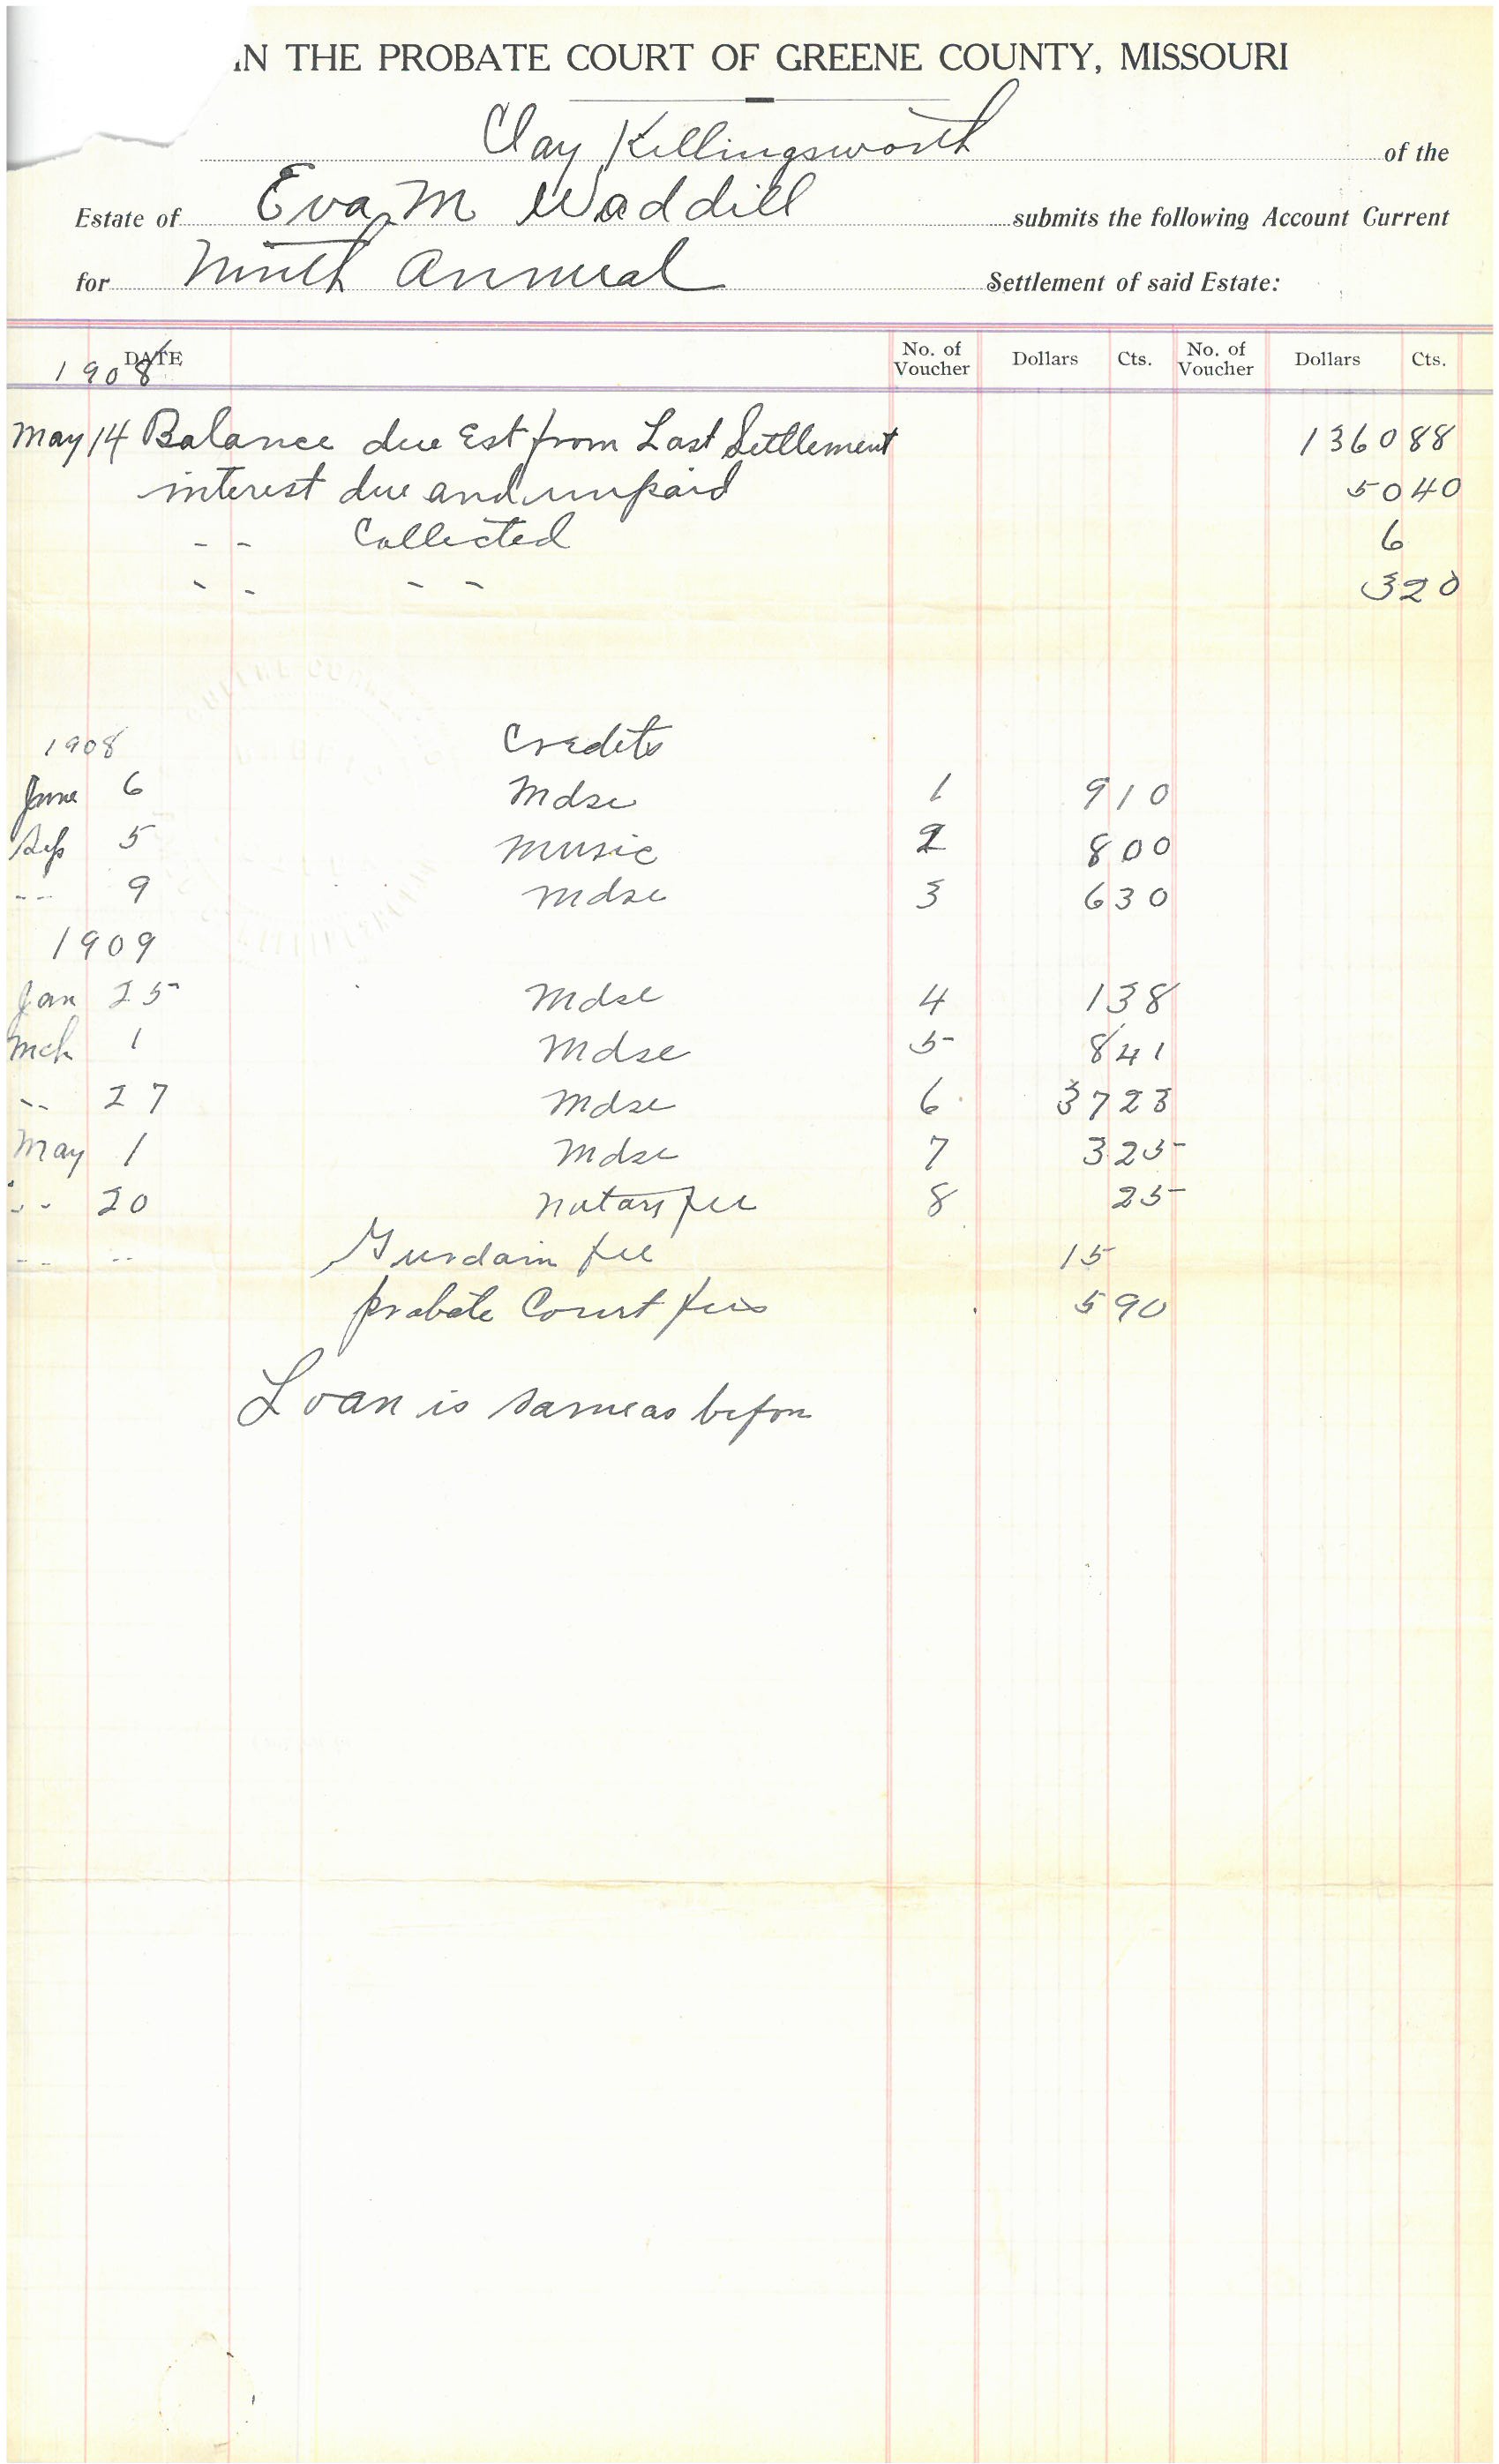 IN THE PROBATE COURT OF GREENE COUNTY, MISSOURI
Clay Killingsworth of the
Estate of Eva M Waddill submits the following Account Current
for Ninth Annual Settlement of said Estate:
DATE No. of Voucher Dollars Cts. No. of Voucher Dollars Cts.
1908
May 14 Balance due Est from Last Settlement 1360 88
interest due and unpaid 50 40
- - Collected 6
- - - - 3 20
1908 Credits
June 6 Mdse 1 9 10
Sep 5 Music 2 8 00
-- 9 Mdse 3 6 30
1909
Jan 25 Mdse 4 1 38
Mch 1 Mdse 5 8 41
-- 27 Mdse 6 37 23
May 1 Mdse 7 3 25
-- 20 Notary fee 8 25
-- -- Gurdain fee 15
Probate Court fees 5 90
Loan is same as before